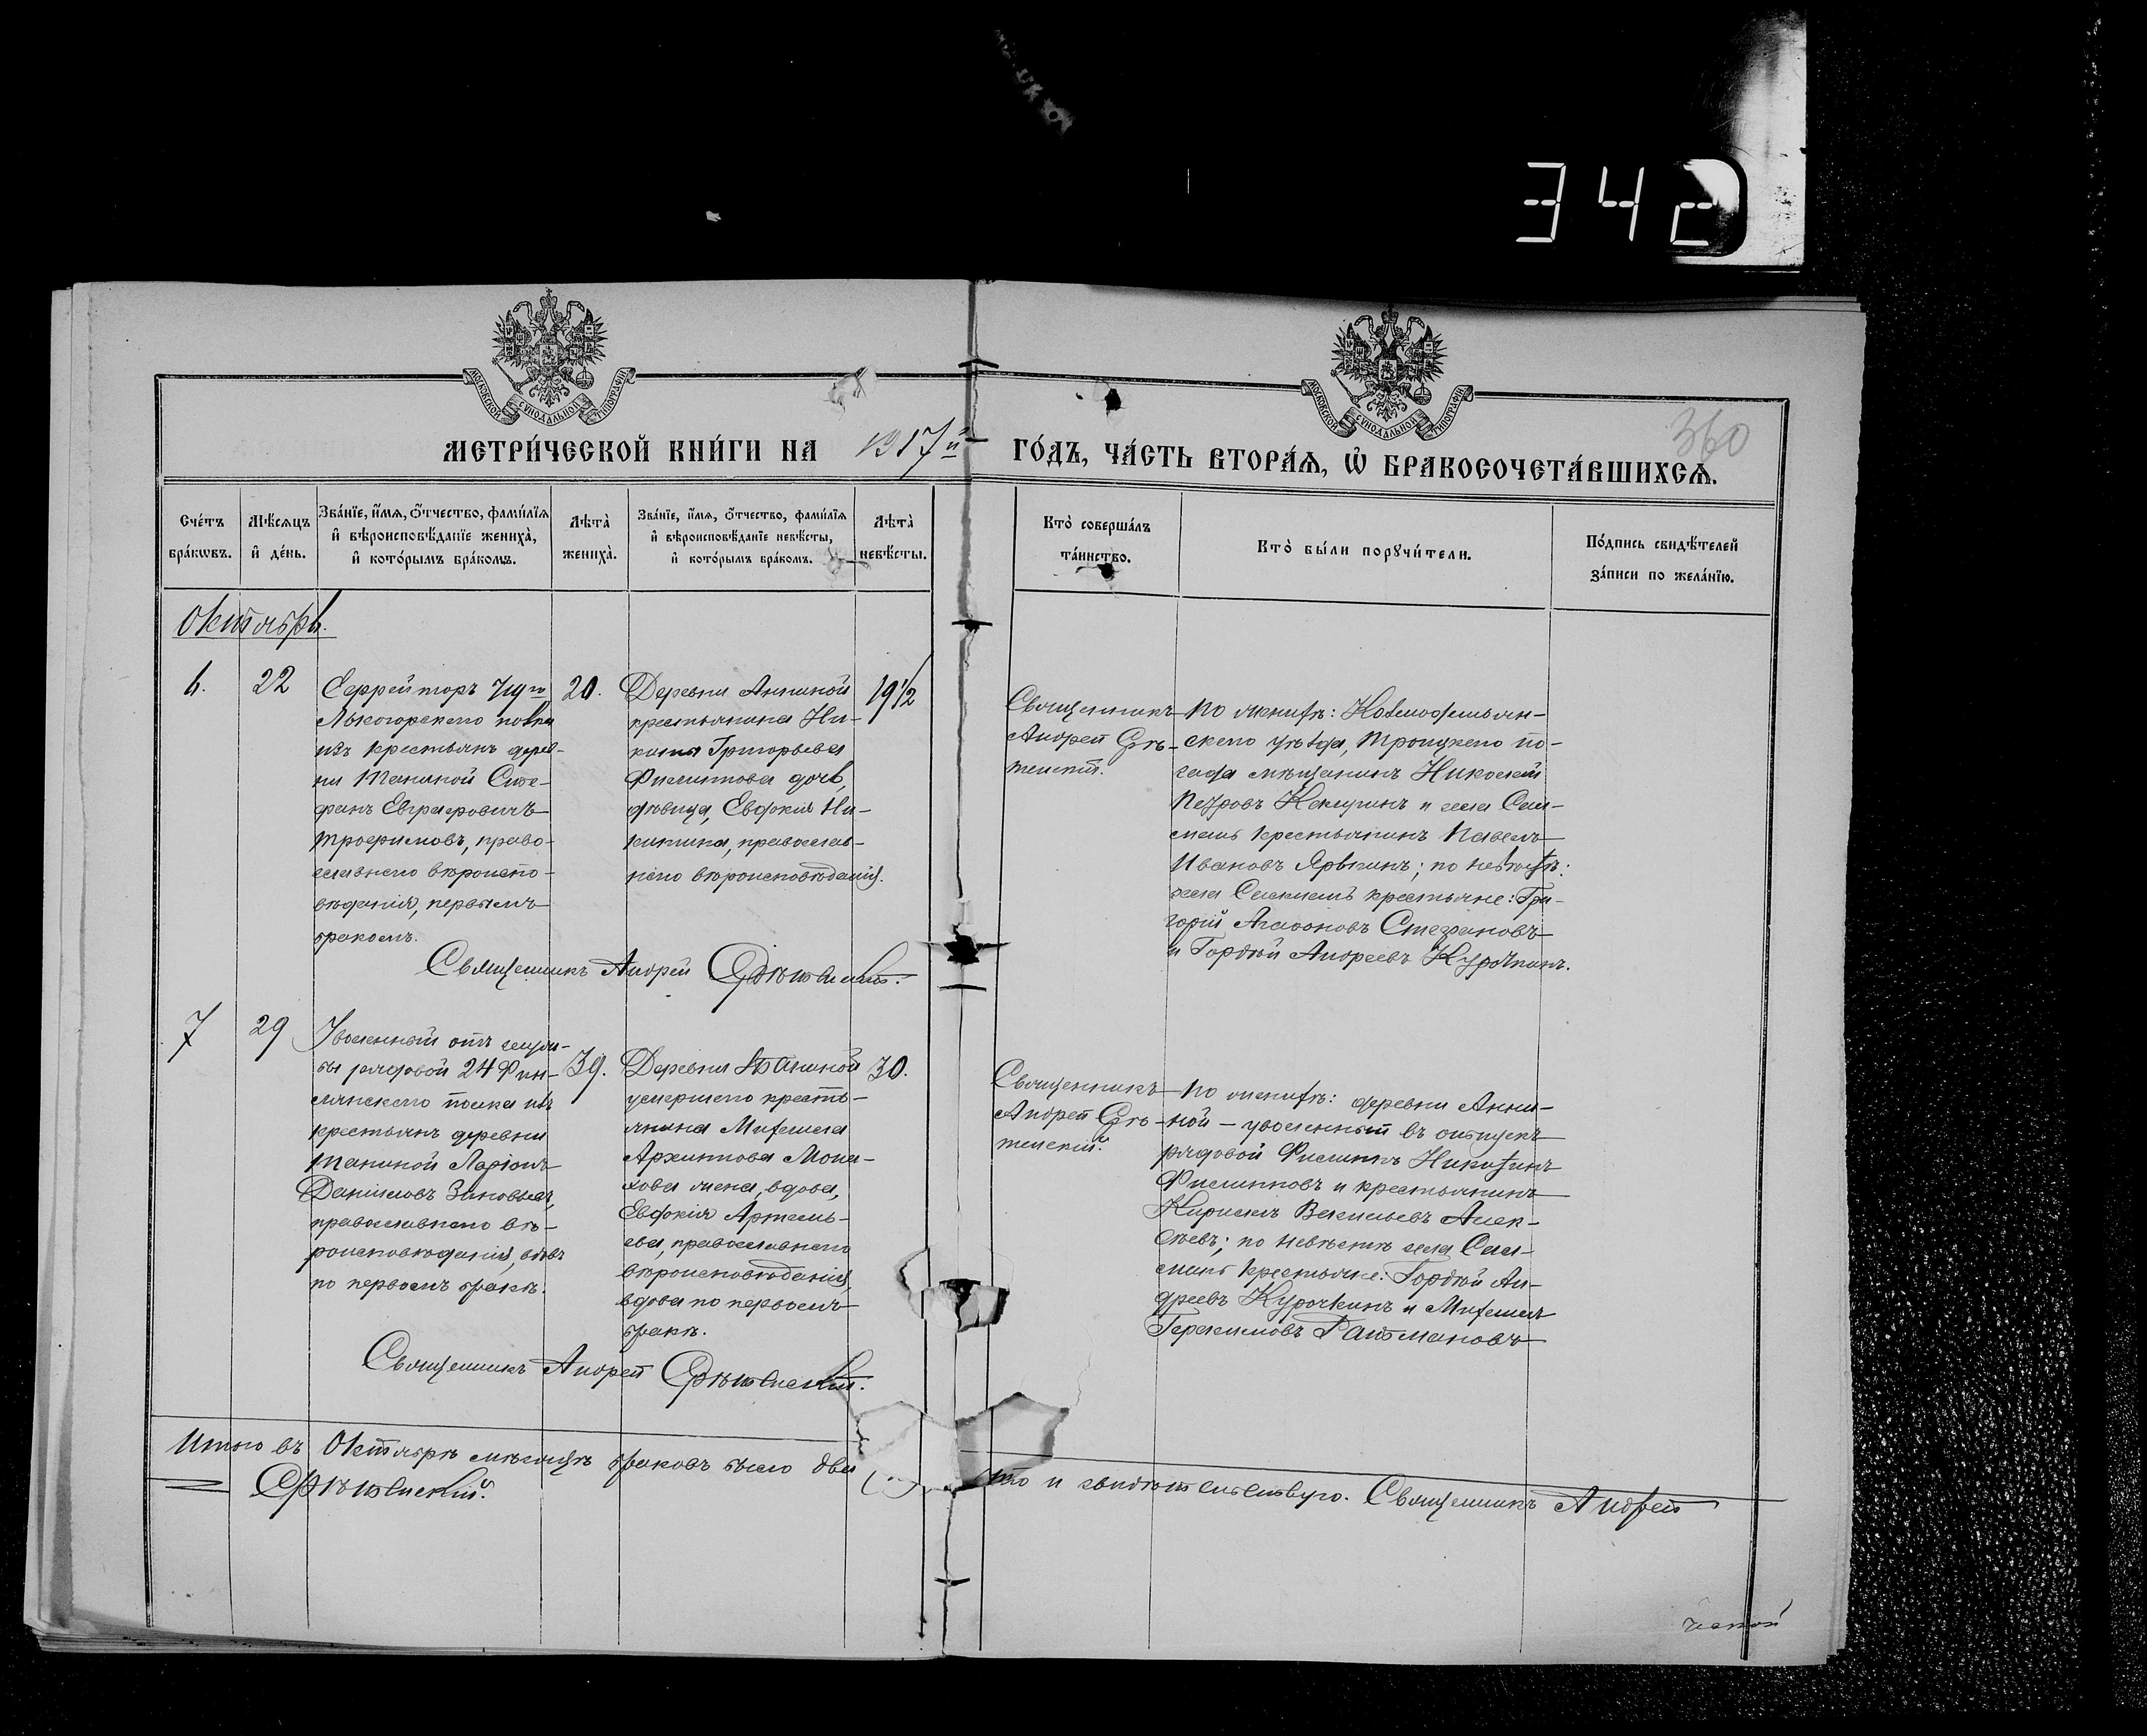 342
МОСКОВСКОЙ СУНОДАЛЬНОЙ ТИПОГРАФІИ
МОСКОВСКОЙ СУНОДАЛЬНОЙ ТИПОГРАФІИ
360
МЕТРИ́ЧЕСКОЙ КНИ́ГИ НА 1917й ГО́ДЪ, ЧА́СТЬ ВТОРА́Я, Ѡ҆ БРАКОСОЧЕТА́ВШИХСѦ.
Сче́тъ
бра́кѡвъ.
Мѣ́сѧцъ
и҆ де́нь.
Зва́нїе, и҆́мѧ, ѻ҆́тчество, фами́лїѧ
и҆ вѣроисповѣ́данїе жениха̀,
и҆ кото́рымъ бра́комъ.
Лѣта̀
жениха̀.
Зва́нїе, и҆́мѧ, ѻ҆́тчество, фами́лїѧ
и҆ вѣроисповѣ́данїе невѣ́сты,
и҆ кото́рымъ бра́комъ.
Лѣта̀
невѣ́сты.
Кто̀ соверша́лъ
та́инство.
Кто̀ бы́ли порꙋчи́тели.
По́дпись свидѣ́телей
за́писи по жела́нїю.
Октябрь.
6.
22
Ефрейторъ 719го
Лысогорскаго полка
изъ крестьянъ дерев-
ни Таниной Сте-
фанъ Евграфовичъ
Трофимовъ, право-
славнаго вѣроиспо-
вѣданія, первымъ
бракомъ.
20.
Деревни Анниной
крестьянина Ни-
киты Григорьева
Филиппова дочь,
дѣвица, Евдокія Ни-
китина, православ-
наго вѣроисповѣданія.
19 1/2
Священникъ
Андрей Срѣ-
тенскій.
По женихѣ: Козмодемьян-
скаго уѣзда, Троицкаго по-
сада мѣщанинъ Николай
Петровъ и села
крестьянинъ Павелъ
Ивановъ Ярыкинъ; по невѣстѣ:
села крестьяне: Гри-
горій Агафоновъ Степановъ
и Гордѣй Андреевъ Курочкинъ.
Священникъ Андрей Срѣтенскій.
7
29
Уволенный отъ служ-
бы рядовой 24 Фин-
ляндскаго полка изъ
крестьянъ деревни
Таниной Ларіонъ
Даніиловъ Зиновьевъ,
православнаго вѣ-
роисповѣданія, вдовъ
по первомъ бракѣ.
39.
Деревни
умершаго кресть-
янина Михаила
Архиппова Мона-
хова жена, вдова,
Евдокія Артемь-
ева, православнаго
вѣроисповѣданія,
вдова по первомъ
бракѣ.
30.
Священникъ
Андрей Срѣ-
тенскій.
По женихѣ: деревни Анни-
ной — уволенный въ отпускъ
рядовой Филиппъ Никитинъ
Филипповъ и крестьянинъ
Кириллъ Васильевъ Алек-
сѣевъ; по невѣстѣ села
крестьяне: Гордѣй Ан-
дреевъ Курочкинъ и Михаилъ
Герасимовъ
Священникъ Андрей Срѣтенскій.
Итого въ Октябрѣ мѣсяцѣ браковъ было два
что и свидѣтельствую. Священникъ Андрей
Срѣтенскій.